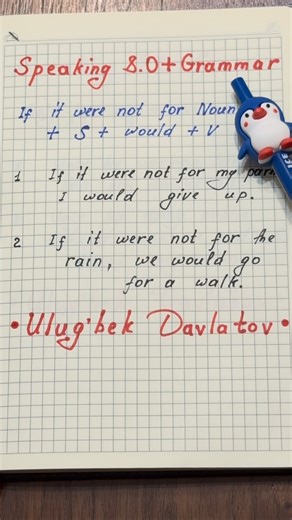 Speaking 8.0+ Grammar
If it were not for Noun
+ S + would + V
1 If it were not for my
I would give up.
2 If it were not for the
rain, we would go
for a walk.
• Ulug'bek Davlatov •